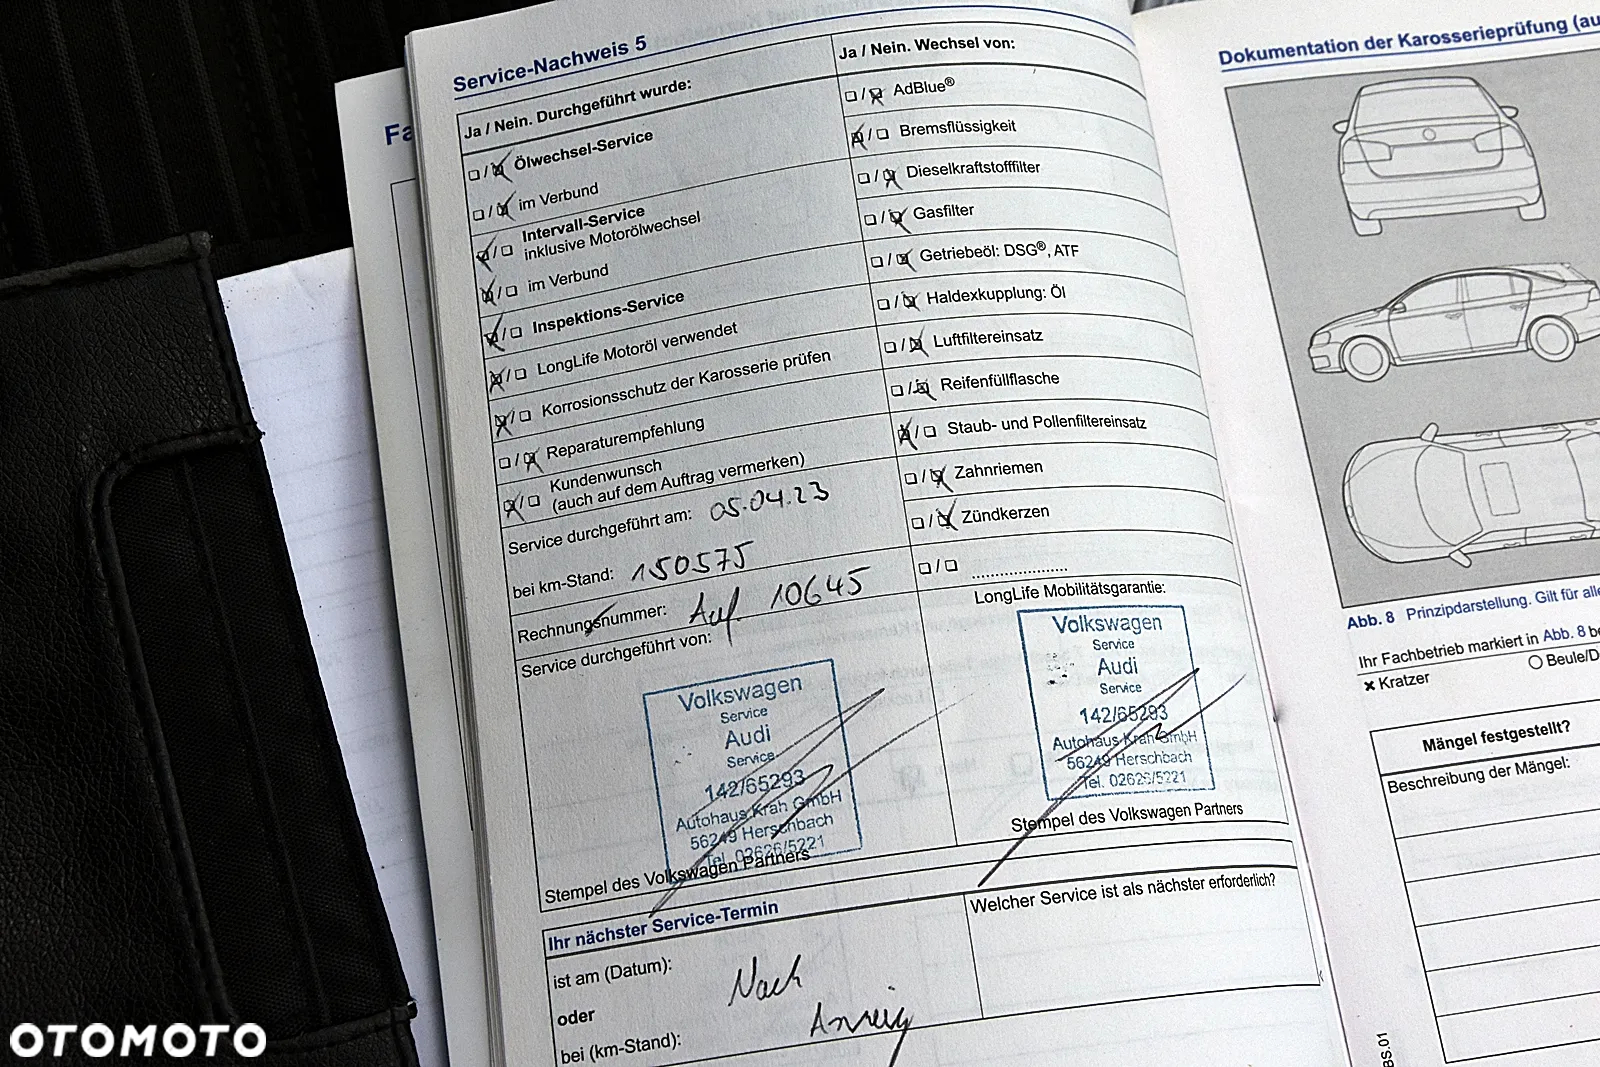 Fa
Service-Nachweis 5
Ja / Nein. Durchgeführt wurde:
☐/☒ Ölwechsel-Service
☐/☒ im Verbund
☒/☐ Intervall-Service
inklusive Motorölwechsel
☒/☐ im Verbund
☒/☐ Inspektions-Service
☒/☐ LongLife Motoröl verwendet
☒/☐ Korrosionsschutz der Karosserie prüfen
☐/☒ Reparaturempfehlung
☒/☐ Kundenwunsch
(auch auf dem Auftrag vermerken)
Service durchgeführt am: 05.04.23
bei km-Stand: 150575
Rechnungsnummer: Auf. 10645
Service durchgeführt von:
Volkswagen
Service
Audi
Service
142/65293
Autohaus Krah GmbH
56249 Herschbach
Tel. 02626/5221
Stempel des Volkswagen Partners
Ja / Nein. Wechsel von:
☐/☒ AdBlue®
☒/☐ Bremsflüssigkeit
☐/☒ Dieselkraftstofffilter
☐/☒ Gasfilter
☐/☒ Getriebeöl: DSG®, ATF
☐/☒ Haldexkupplung: Öl
☐/☒ Luftfiltereinsatz
☐/☒ Reifenfüllflasche
☒/☐ Staub- und Pollenfiltereinsatz
☐/☒ Zahnriemen
☐/☒ Zündkerzen
☐/☐ ......................
LongLife Mobilitätsgarantie:
Volkswagen
Service
Audi
Service
142/65293
Autohaus Krah GmbH
56249 Herschbach
Tel. 02626/5221
Stempel des Volkswagen Partners
Ihr nächster Service-Termin
ist am (Datum): Nach
oder
bei (km-Stand): Anzeig
Welcher Service ist als nächster erforderlich?
Dokumentation der Karosserieprüfung (au
Abb. 8 Prinzipdarstellung. Gilt für alle
Ihr Fachbetrieb markiert in Abb. 8 be
○ Beule/D
✖ Kratzer
Mängel festgestellt?
Beschreibung der Mängel:
BS.01
OTOMOTO